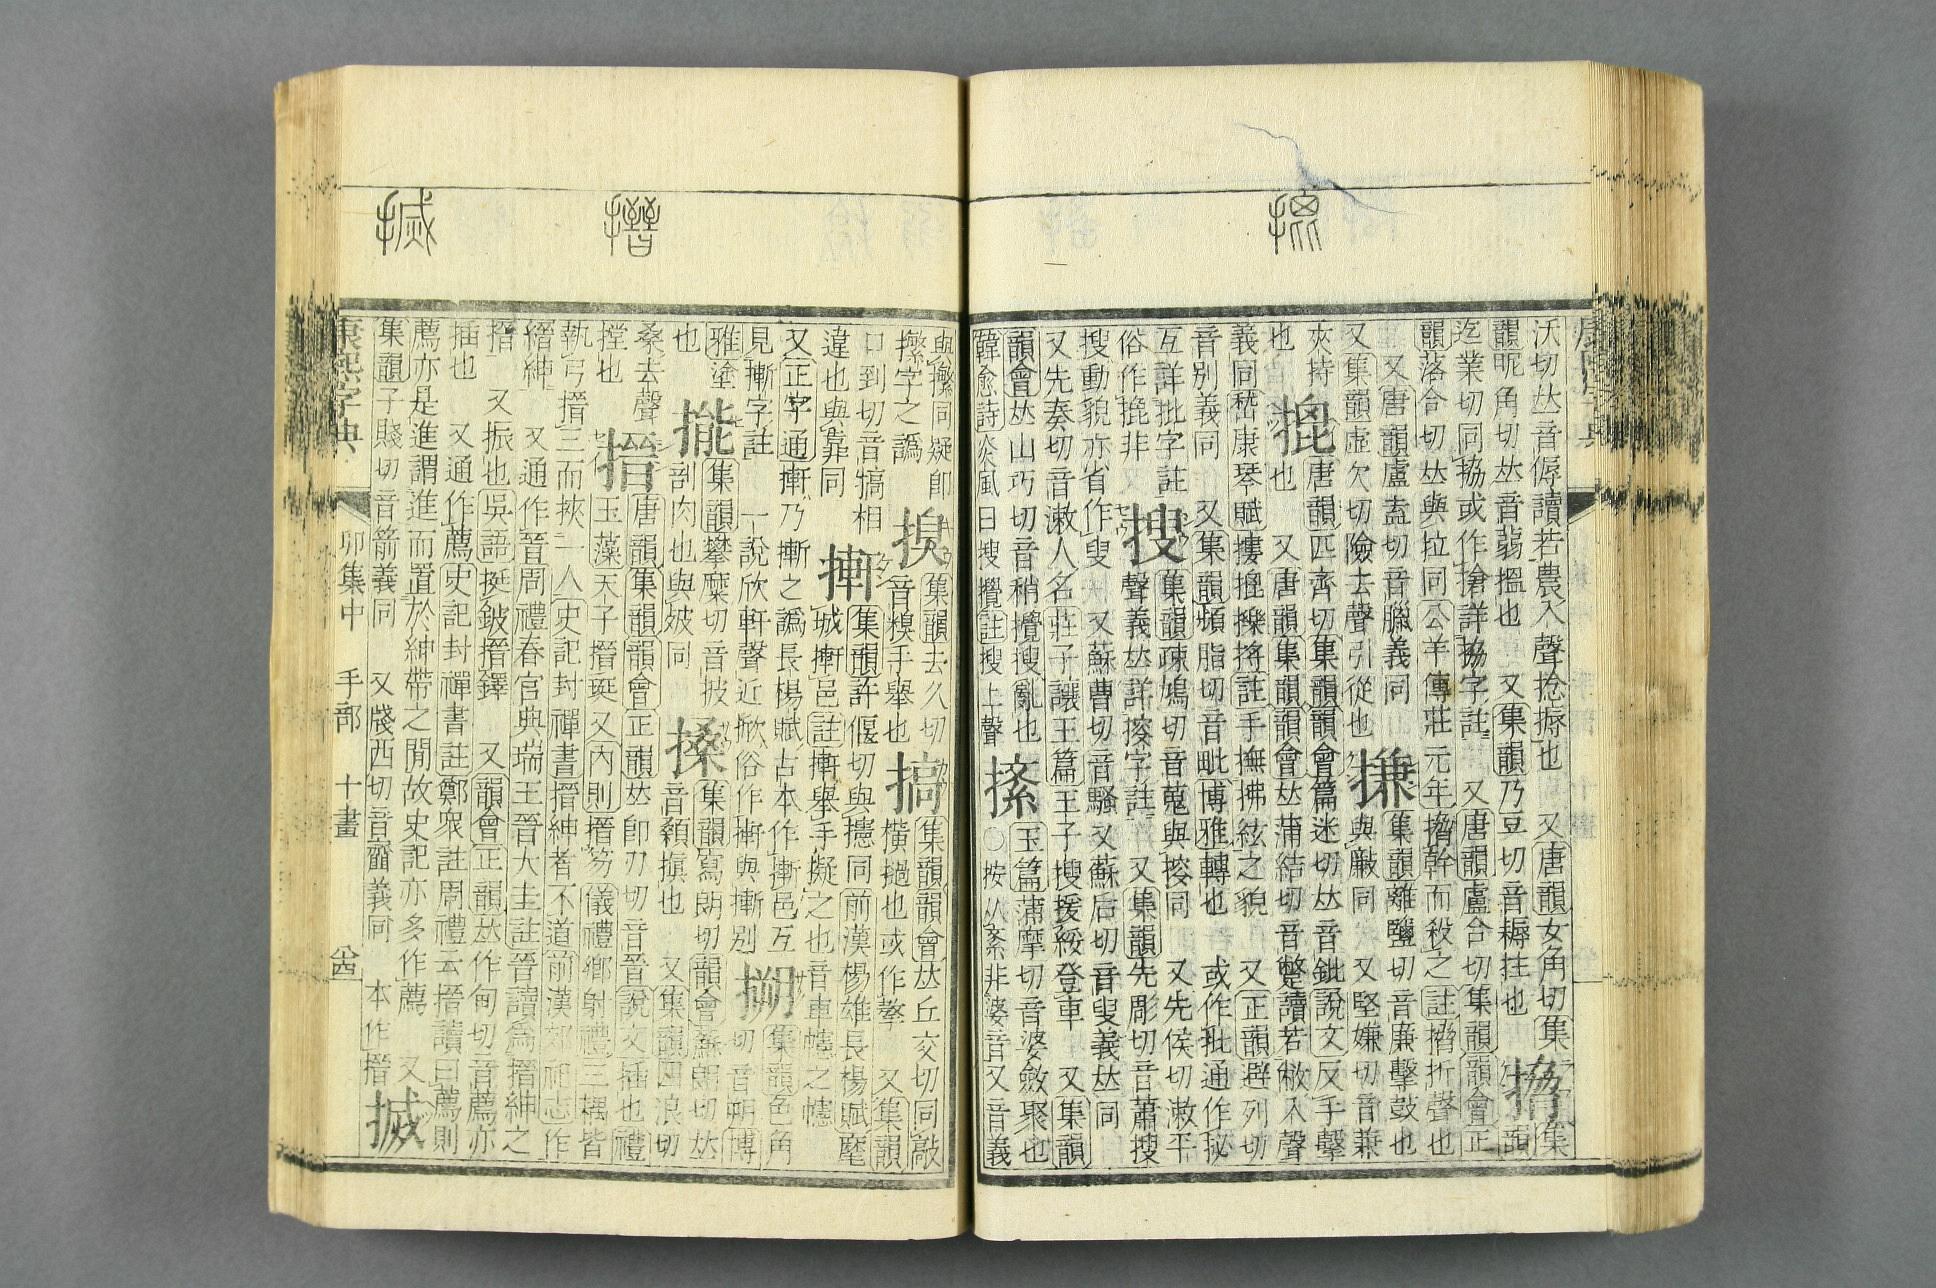 沃切𠀤音傉讀若農入聲捻搙也 又唐韻女角切集
韻昵角切𠀤音蒻搵也 又集韻乃豆切音耨拄也
搚 集韻
迄業切同協或作拹詳協字註 又唐韻盧合切集韻韻會正
韻落合切𠀤與拉同公羊傳莊元年搚幹而殺之註搚折聲也
又唐韻盧盍切音臘義同
又集韻虛欠切險去聲引從也
搛 集韻離鹽切音廉擊鼓也
與㪘同 又堅嫌切音兼
夾持
也
㨠 唐韻匹齊切集韻韻會篇迷切𠀤音鈚說文反手擊
也 又唐韻集韻韻會𠀤蒲結切音蹩讀若㡀入聲
義同嵇康琴賦摟㨠擽捋註手撫拂絃之貌 又正韻避列切
音別義同 又集韻頻脂切音毗博雅轉也 或作 通作
互詳批字註
俗作 非
搜 集韻疎鳩切音蒐與挍同 又先侯切漱平
聲義𠀤詳 字註 又集韻先彫切音蕭搜
搜動貌亦省作叟 又蘇曹切音騷又蘇后切音叟義𠀤同
又先奏切音漱人名莊子讓王篇王子搜援綏登車 又集韻
韻會𠀤山巧切音稍攪搜亂也
韓愈詩炎風日搜攪註搜上聲
玉篇蒲摩切音婆斂聚也
○按从紊非婆音又音義
與 同疑卽
字之譌
搝 集韻去久切
音糗手舉也
搞 集韻韻會𠀤丘交切同敲
橫撾也或作㪣 又集韻
口到切音犒相
違也與靠同
搟 集韻許偃切與攇同前漢楊雄長楊賦麾
城搟邑註搟舉手擬之也音車幰之幰
又正字通搟乃摲之譌長楊賦古本作摲邑互
見摲字註 一說欣軒聲近掀俗作搟與摲別
搠 集韻色角
切音朔博
雅塗
也
集韻攀糜切音披
剖肉也與 同
搡 集韻寫朗切韻會蘇朗切𠀤
音顙搷也 又集韻四浪切
桑去聲
摚也
搢 唐韻集韻韻會正韻𠀤卽刃切音晉說文插也禮
玉藻天子搢珽又內則搢笏儀禮鄉射禮三耦皆
執弓搢三而挾一人史記封禪書搢紳者不道前漢郊祀志作
縉紳 又通作晉周禮春官典瑞王晉大圭註晉讀爲搢紳之
搢 又振也吳語挺鈹搢鐸 又韻會正韻𠀤作甸切音薦亦
插也 又通作薦史記封禪書註鄭衆註周禮云搢讀曰薦則
薦亦是進謂進而置於紳帶之閒故史記亦多作薦 又
集韻子賤切音箭義同 又牋西切音齎義同 本作搢
搣
康熙字典 卯集中 手部 十畫 八四